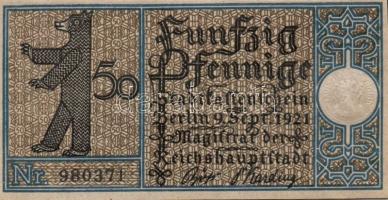 50
Funfzig
Pfennige
Stadtkassenschein
Berlin 9. Sept. 1921
Magistrat der
Reichshauptstadt
Nr. 980371